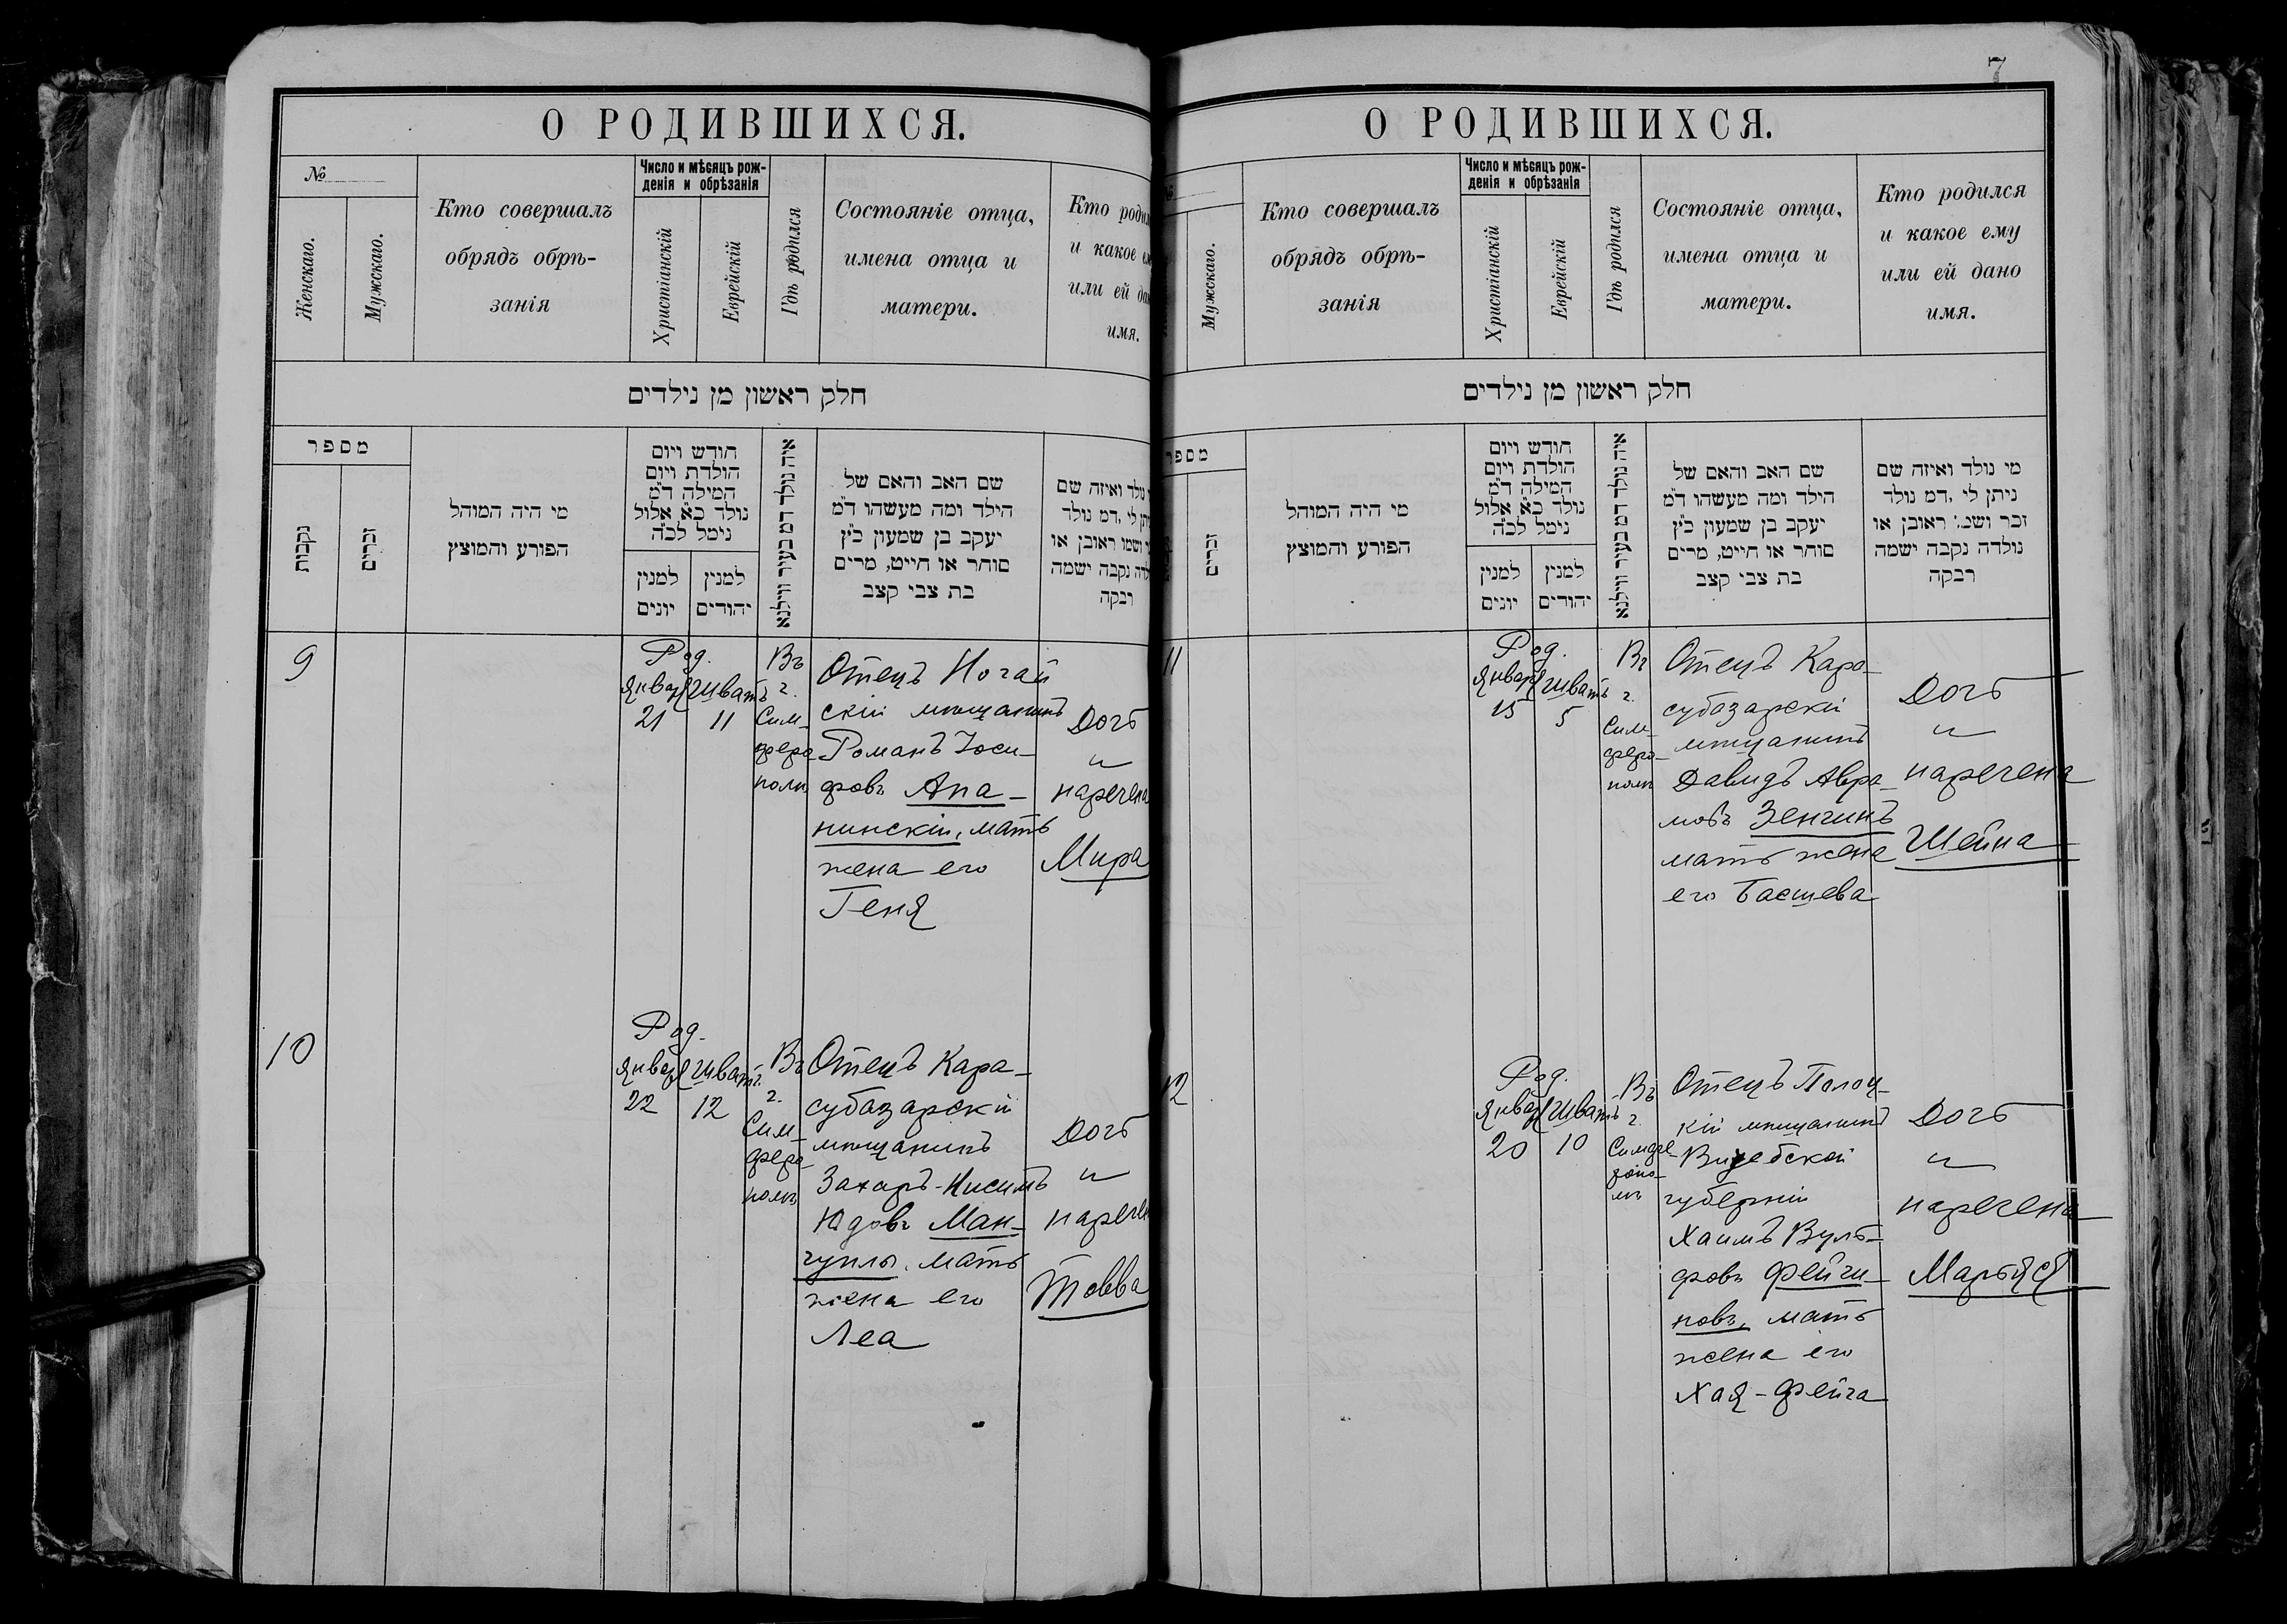 7
О РОДИВШИХСЯ.
№
Женскаго.
Мужскаго.
Кто совершалъ
обрядъ обрѣ-
занія
Число и мѣсяцъ рож-
денія и обрѣзанія
Христіанскій
Еврейскій
Гдѣ родился
Состояніе отца,
имена отца и
матери.
Кто роди
и какое
или ей да
имя.
חלק ראשון מן נילדים
מספר
נקבות
זכרים
מי היה המוהל
הפורע והמוצץ
חודש ויום
הולדת ויום
המילה ד״מ
נולד כ״א אלול
נימל לכ״ה
למנין
יונים
למנין
יהודים
איה נולד דמ בעיר ווילנא
שם האב והאם של
הילד ומה מעשהו ד״מ
יעקב בן שמעון כ״ץ
סוחר או חייט, מרים
בת צבי קצב
נולד ואיזה שם
תן לי ,דמ נולד
ושמו ראובן או
לדה נקבה ישמה
רבקה
9
Род.
Января
21
Шватъ
11
Въ
г.
Сим-
феро-
полѣ
Отецъ Ногай
скій мѣщанинъ
Романъ Іоси-
фовъ Ана-
нинскій, мать
жена его
Геня
Дочь
и
наречена
Мира
10
Род.
Января
22
Шватъ
12
Въ
г.
Сим-
феро-
полѣ
Отецъ Кара-
субазарскій
мѣщанинъ
Захаръ-Нисимъ
Юдовъ Ман-
гуплы, мать
жена его
Леа
Дочь
и
наречен
Товва
О РОДИВШИХСЯ.
Мужскаго.
Кто совершалъ
обрядъ обрѣ-
занія
Число и мѣсяцъ рож-
денія и обрѣзанія
Христіанскій
Еврейскій
Гдѣ родился
Состояніе отца,
имена отца и
матери.
Кто родился
и какое ему
или ей дано
имя.
חלק ראשון מן נילדים
מספר
זכרים
מי היה המוהל
הפורע והמוצץ
חודש ויום
הולדת ויום
המילה ד״מ
נולד כ״א אלול
נימל לכ״ה
למנין
יונים
למנין
יהודים
איה נולד דמ בעיר ווילנא
שם האב והאם של
הילד ומה מעשהו ד״מ
יעקב בן שמעון כ״ץ
סוחר או חייט, מרים
בת צבי קצב
מי נולד ואיזה שם
ניתן לי ,דמ נולד
זכר ושמו ראובן או
נולדה נקבה ישמה
רבקה
11
Род.
Января
15
Шватъ
5
Въ
г.
Сим-
феро-
полѣ
Отецъ Кара-
субазарскій
мѣщанинъ
Давидъ Авра-
мовъ Зенгинъ
мать жена
его Басшева
Дочь
и
наречена
Шейна
12
Род.
Января
20
Шватъ
10
Въ
г.
Симфе-
ропо-
лѣ
Отецъ Полоц-
кій мѣщанинъ
Витебской
губерніи
Хаимъ Вуль-
фовъ Фейги-
новъ, мать
жена его
Хая-Фейга
Дочь
и
наречена
Марьяся